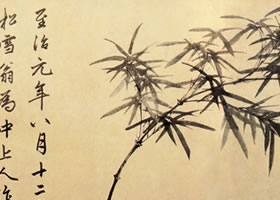 至治元年八月十二
松雪翁為中上人作